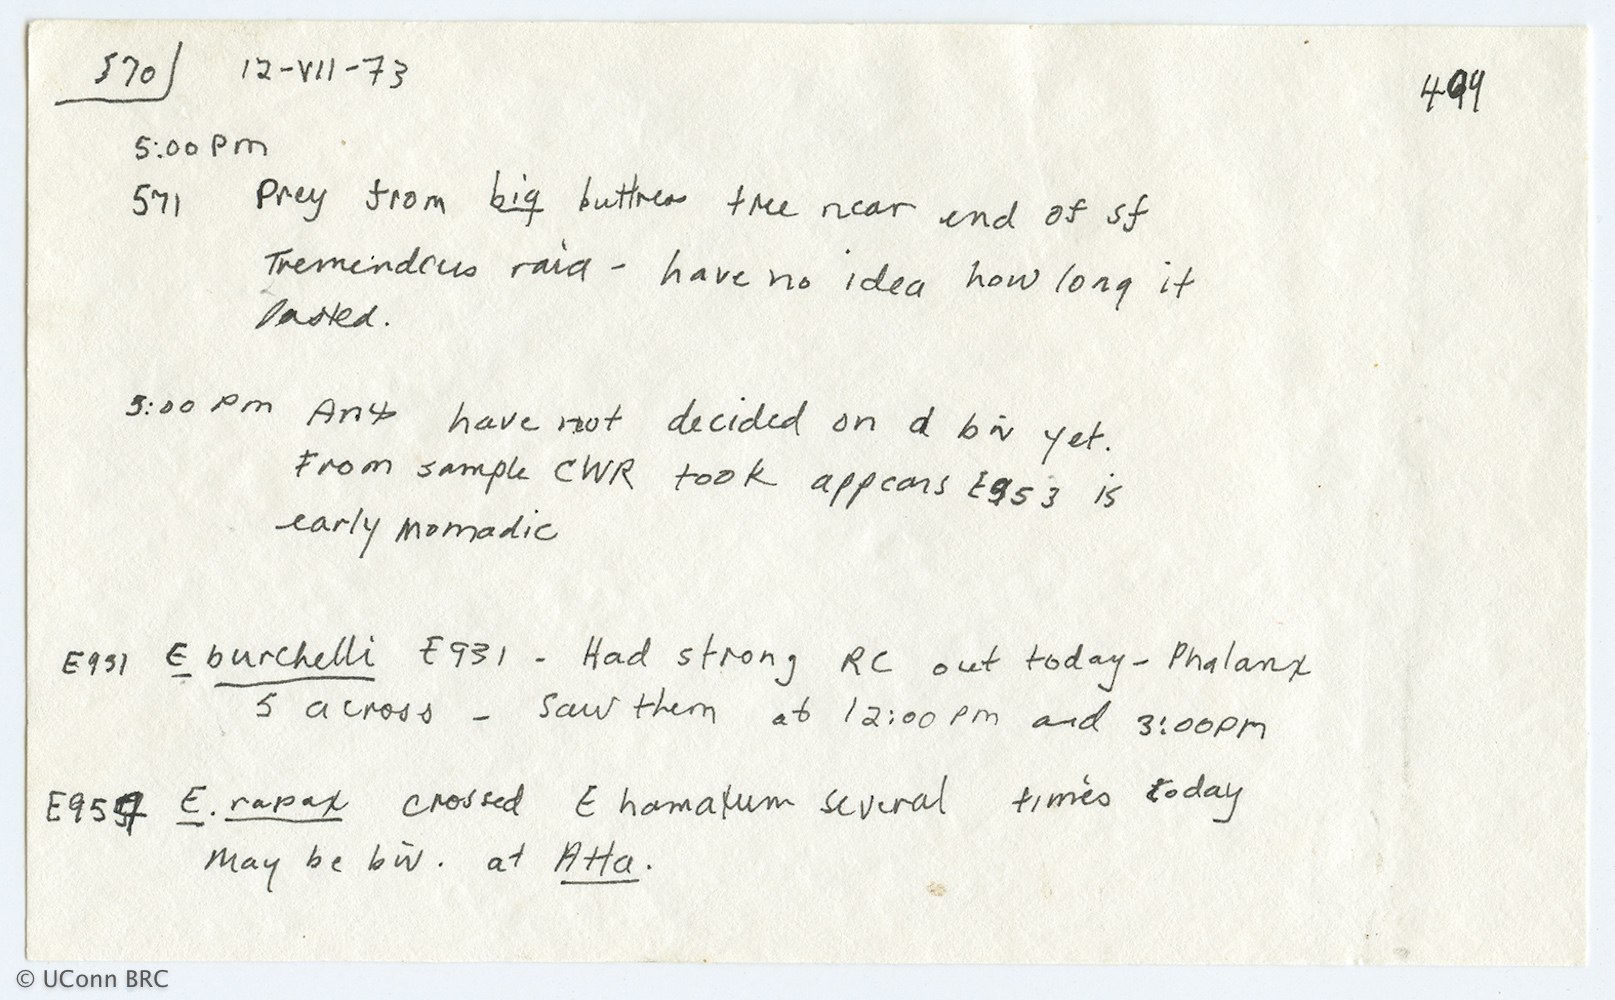 570 12-VII-73
5:00 Pm
571 Prey from big buttress tree near end of sf
Tremendous raid - have no idea how long it
lasted.
5:00 Pm Ants have not decided on a biv yet.
From sample CWR took appears E953 is
early nomadic
E931 E burchelli E931 - Had strong RC out today - Phalanx
5 across - Saw them at 12:00 pm and 3:00pm
E. rapax crossed E hamatum several times today
May be biv. at Atta.
© UConn BRC